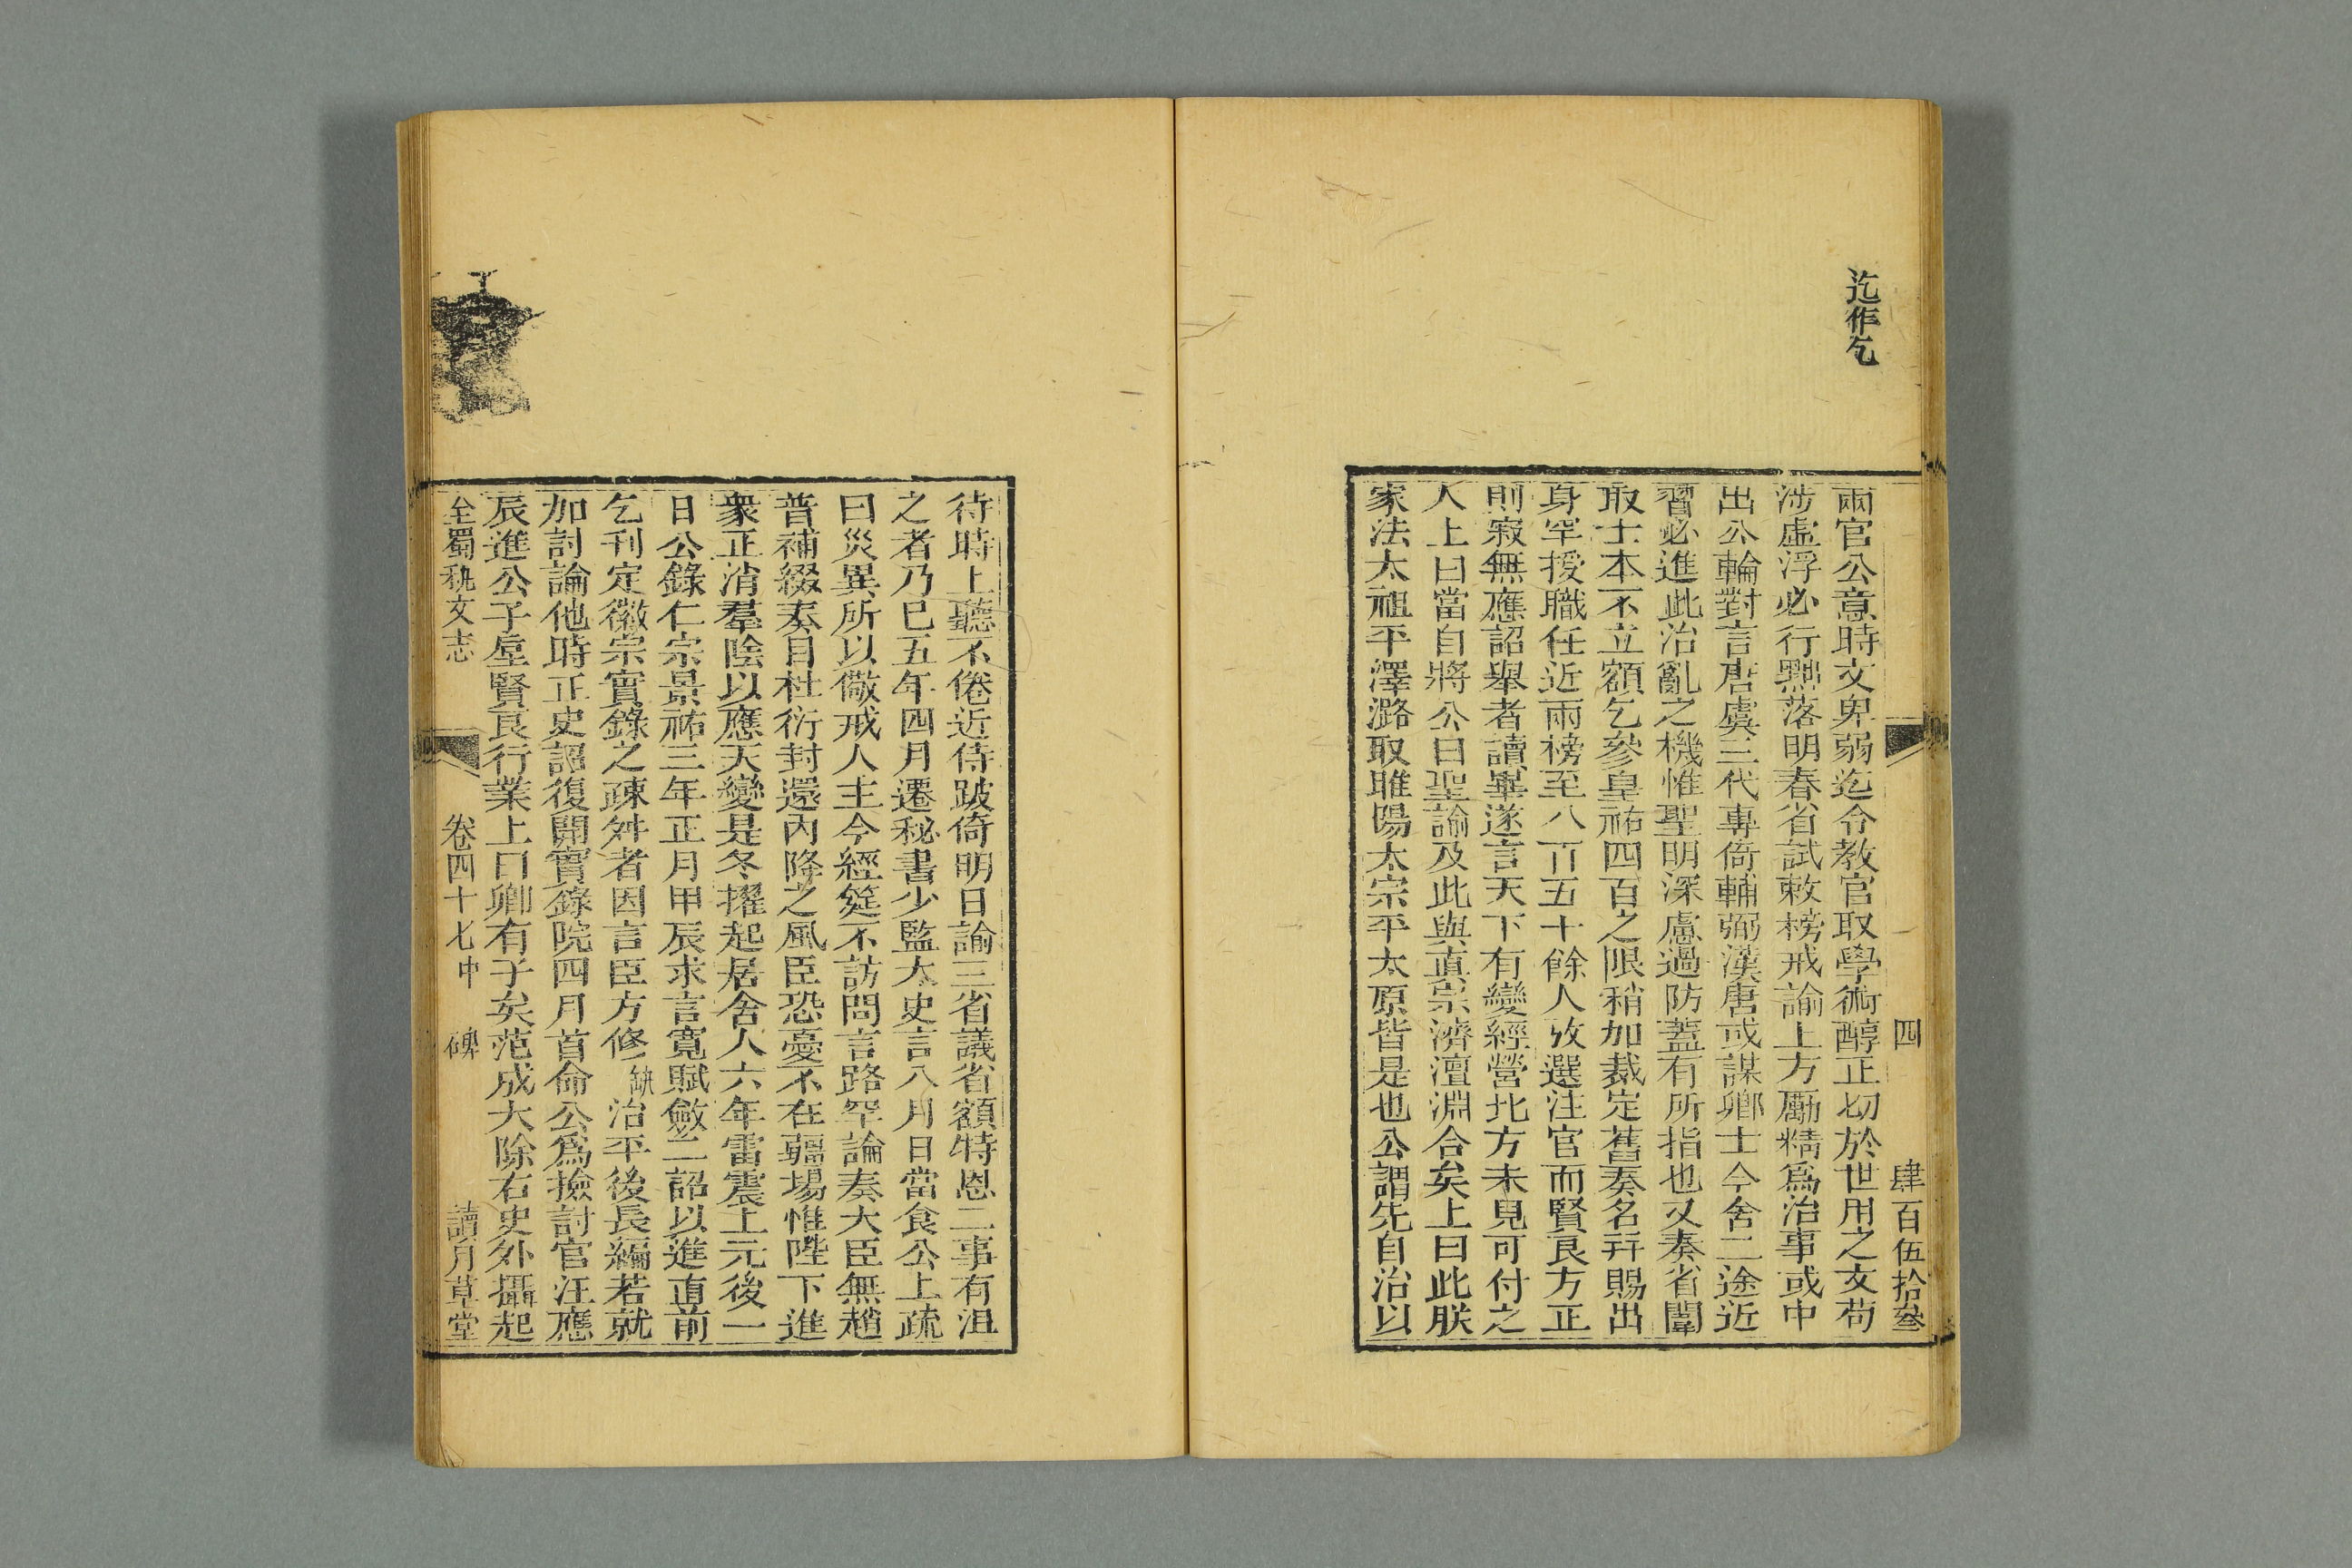 迄作乞
四　肆百伍拾叄
兩官公意時文卑弱迄令教官取學術醇正切於世用之文苟
涉虛浮必行黜落明春省試敕榜戒諭上方勵精爲治事或中
出公輪對言唐虞三代專倚輔弼漢唐或謀卿士今舍二途近
習必進此治亂之機惟聖明深慮過防蓋有所指也又奏省闈
取士本不立額乞參皇祐四百之限稍加裁定舊奏名幷賜出
身罕授職任近兩榜至八百五十餘人攷選注官而賢良方正
則寂無應詔舉者讀畢遂言天下有變經營北方未見可付之
人上曰當自將公曰聖諭及此與眞宗濟澶淵合矣上曰此朕
家法太祖平澤潞取睢陽太宗平太原皆是也公謂先自治以
待時上聽不倦近侍跛倚明日諭三省議省額特恩二事有沮
之者乃已五年四月遷秘書少監太史言八月日當食公上疏
曰災異所以儆戒人主今經筵不訪問言路罕論奏大臣無趙
普補綴奏目杜衍封還內降之風臣恐憂不在疆場惟陛下進
衆正消羣陰以應天變是冬擢起居舍人六年雷震上元後一
日公錄仁宗景祐三年正月甲辰求言寬賦斂二詔以進直前
乞刊定徽宗實錄之疎舛者因言臣方修缺治平後長編若就
加討論他時正史詔復開實錄院四月首命公爲撿討官汪應
辰進公子垕賢良行業上曰卿有子矣范成大除右史外攝起
全蜀秇文志　卷四十七中　碑　讀月草堂